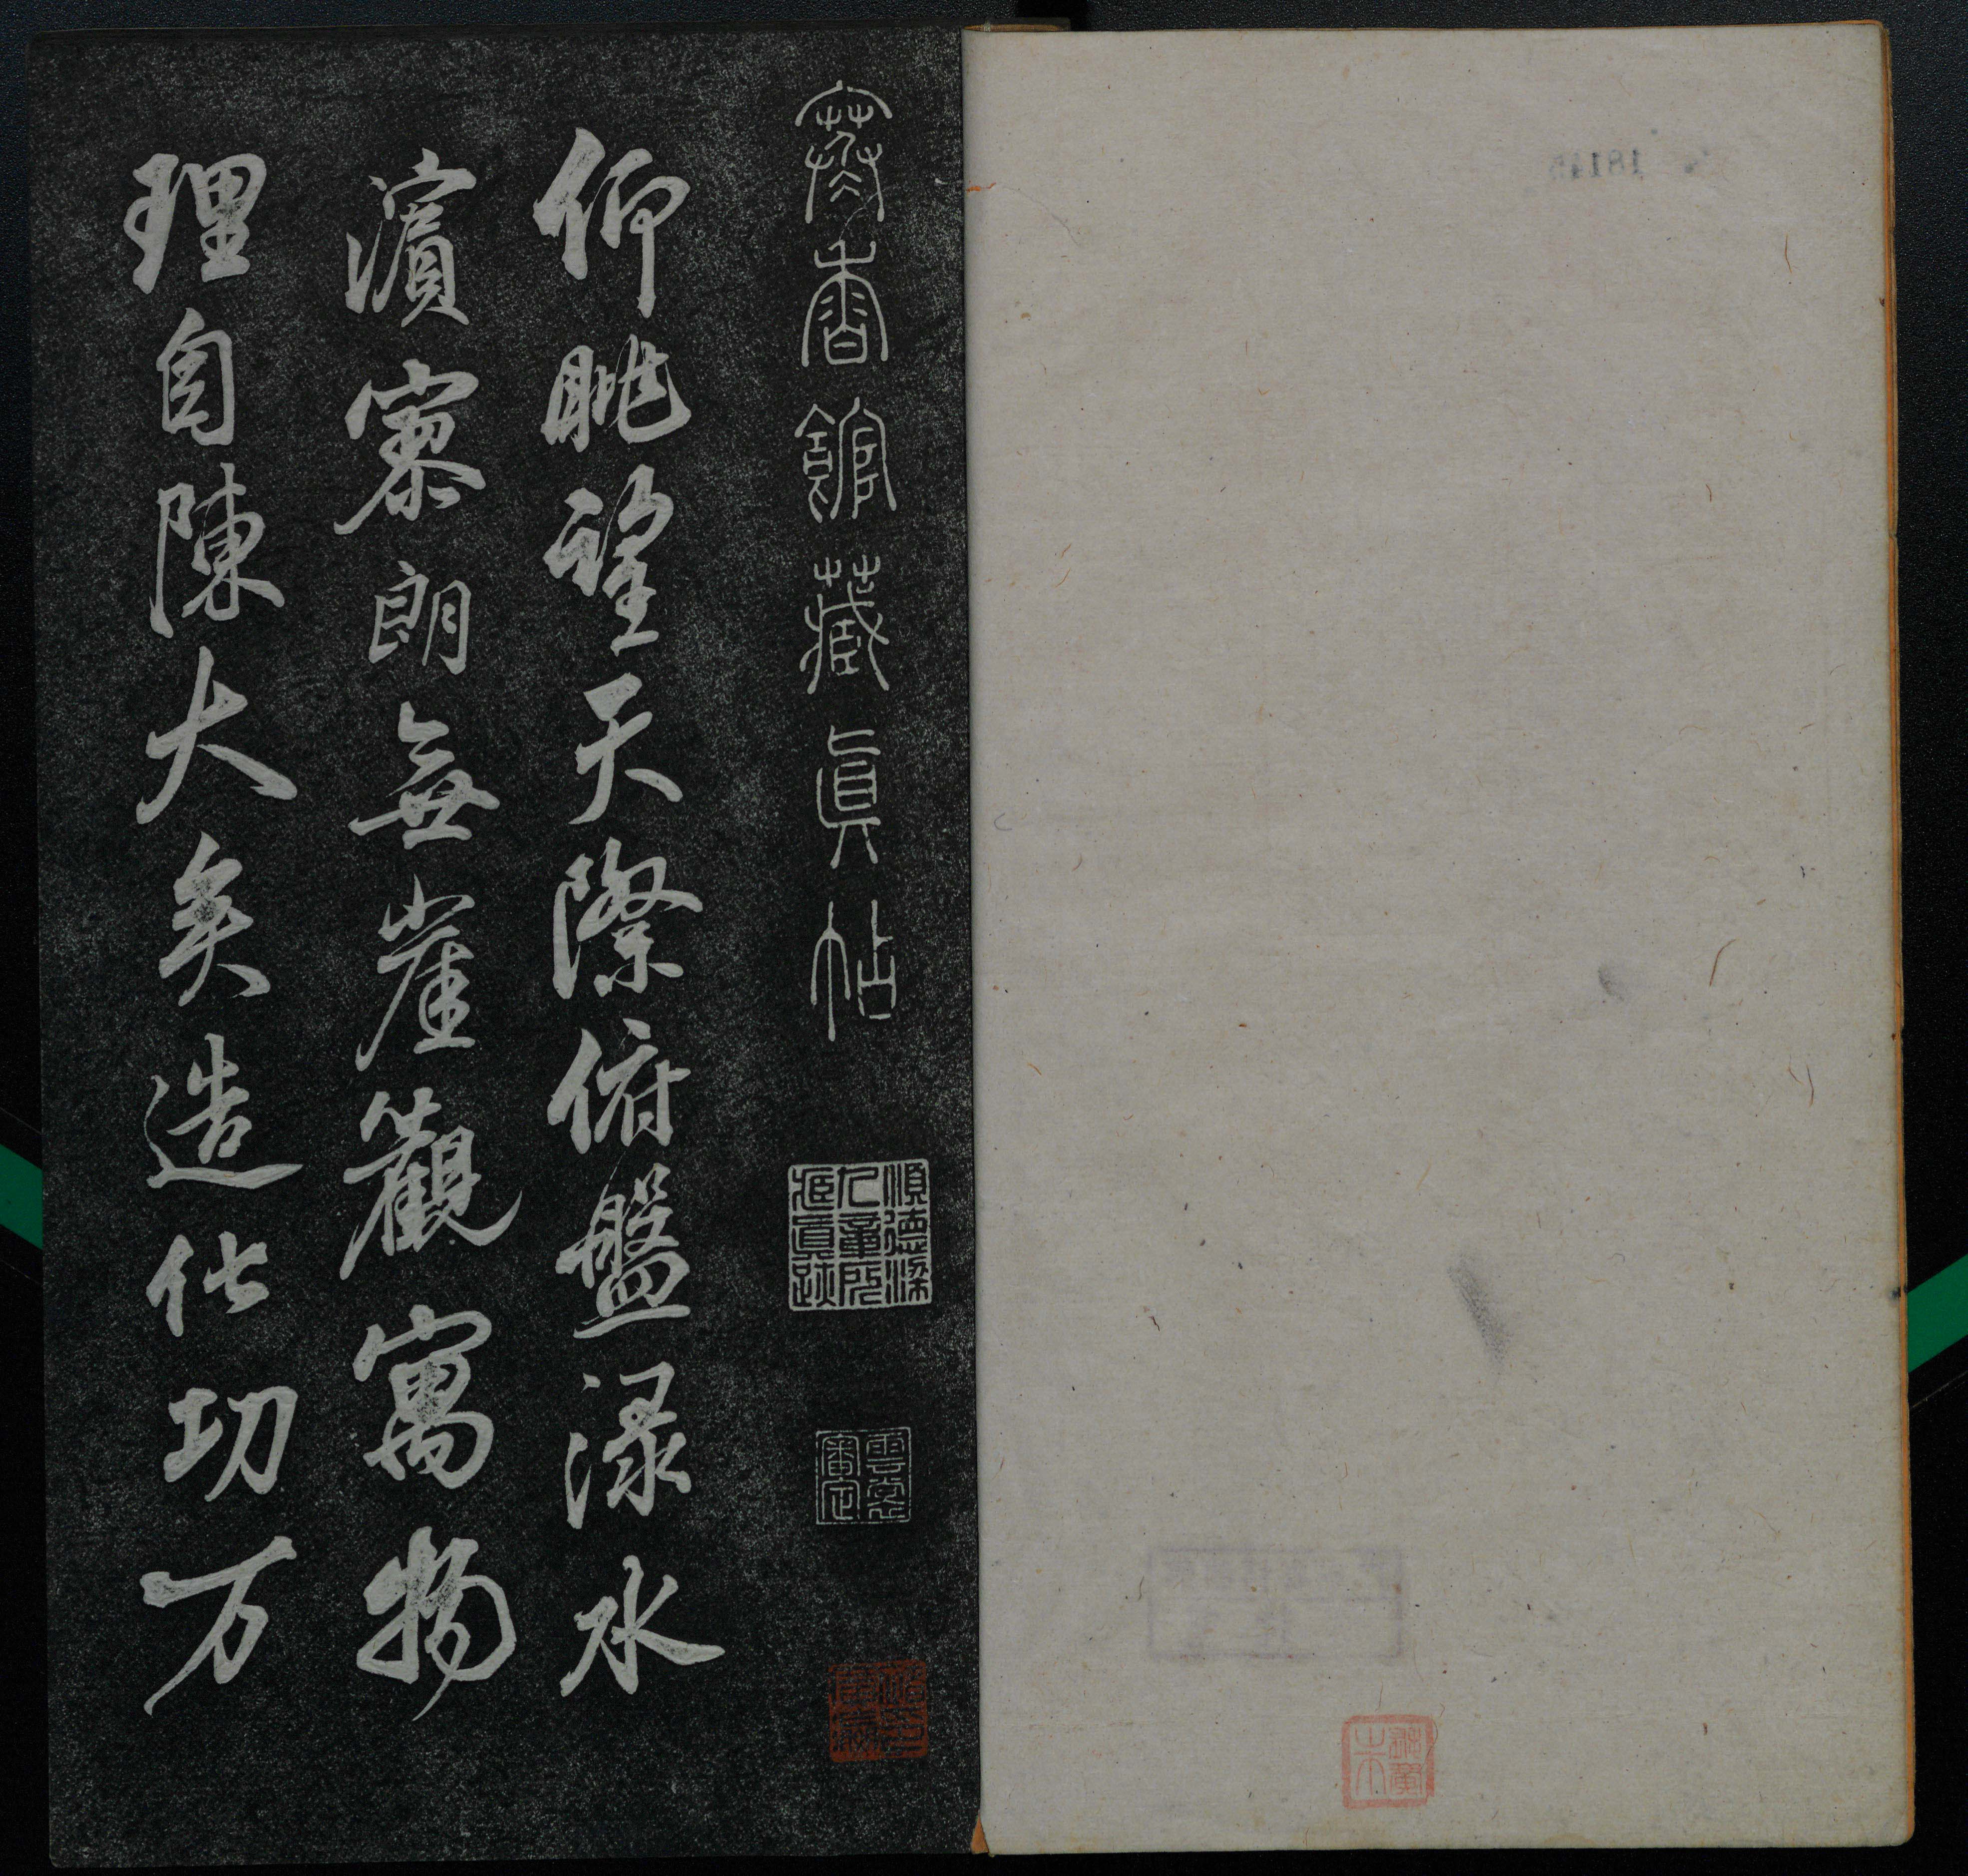 寒香館藏眞帖
順德梁
九章所
藏眞跡
雲裳
審定
仰眺望天際俯盤淥水
濱寥朗無崖觀寓物
理自陳大矣造化功万